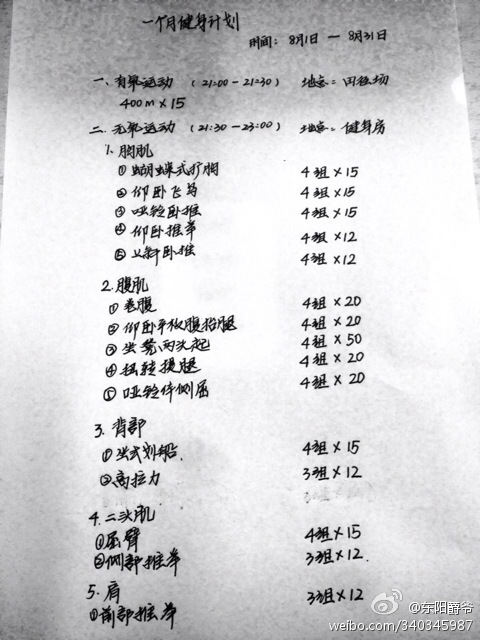 一个月健身计划
时间：8月1日 — 8月31日
一、有氧运动 （21:00-21:30） 地点：田径场
400m×15
二、无氧运动 （21:30-23:00） 地点：健身房
1. 胸肌
①蝴蝶式扩胸 4组×15
②仰卧飞鸟 4组×15
③哑铃卧推 4组×15
④仰卧推举 4组×12
⑤上斜卧推 4组×12
2. 腹肌
①卷腹 4组×20
②仰卧平板腹抬腿 4组×20
③坐凳两头起 4组×50
④扭转提腿 4组×20
⑤哑铃体侧屈 4组×20
3. 背部
①坐式划船 4组×15
②高拉力 3组×12
4. 二头肌
①屈臂 4组×15
②侧部推举 3组×12
5. 肩 3组×12
①前部推举
@东阳爵爷
weibo.com/340345987